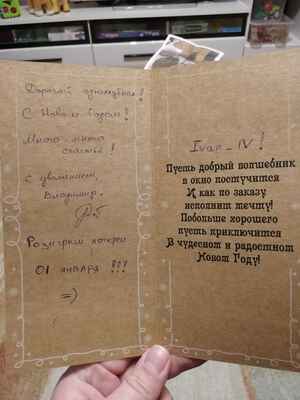 Дорогой
С Новым Годом!
Много-много
счастья!
С уважением,
Владимир.
Розыгрыш лотереи
01 января !!!
=)
Ivan_IV!
Пусть добрый волшебник
в окно постучится
И как по заказу
исполнит мечту!
Побольше хорошего
пусть приключится
В чудесном и радостном
Новом Году!